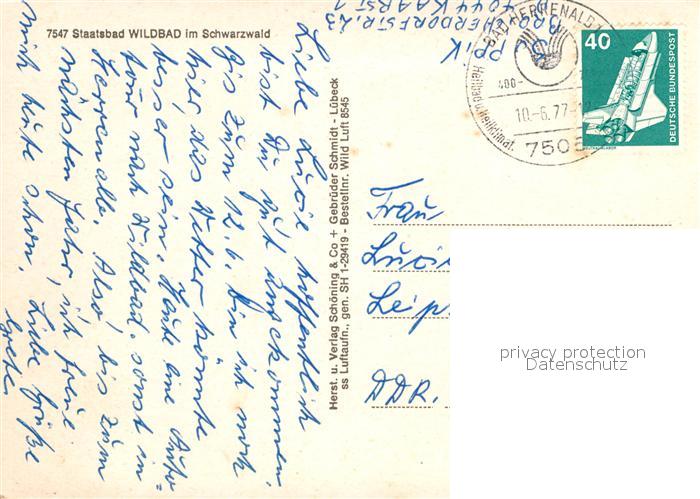 7547 Staatsbad WILDBAD im Schwarzwald
Liebe Lucie hoffentlich
bist Du gut angekommen.
Bis zum 12.6. bin ich noch
hier, das Wetter könnte
besser sein. Heute eine Auto-
tour nach Wildbad, sonst in
Herrenalb. Also, bis zum
nächsten Jahr, ich freue
mich heute schon. Liebe Grüße
Herst. u. Verlag Schöning & Co + Gebrüder Schmidt - Lübeck
ss Luftaufn., gen. SH 1-29419 - Bestellnr. Wild Luft 8545
4044 KAARST 1
BAD HERRENALB
400-
10.-6.77-
Heilbad
7506
40
DEUTSCHE BUNDESPOST
Frau
Lucie
Leip
DDR.
privacy protection
Datenschutz